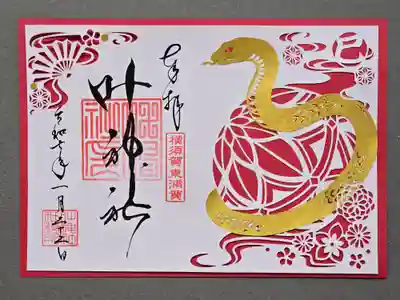 奉拝
横須賀東浦賀
叶神社
令和七年一月二十五日